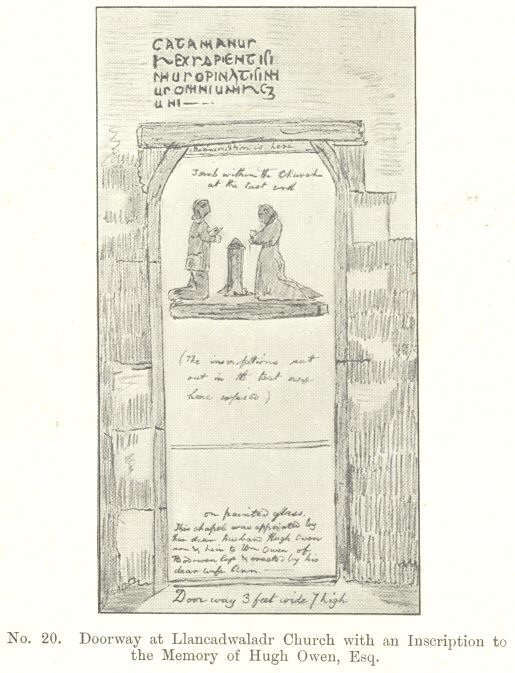 CATAMANUS
REX SAPIENTISI
MUS OPINATISIM
US OMNIUM REG
UM
Resurrection is here
Tomb within the Church
at the east end
(The inscriptions set
out in the text are
here copied)
on painted glass.
This chapel was appointed by
her dear husband Hugh Owen
son & heir to Wm Owen of
Bodowen Esqr & erected by his
dear wife Ann.
Door way 3 feet wide 7 high
No. 20. Doorway at Llancadwaladr Church with an Inscription to
the Memory of Hugh Owen, Esq.